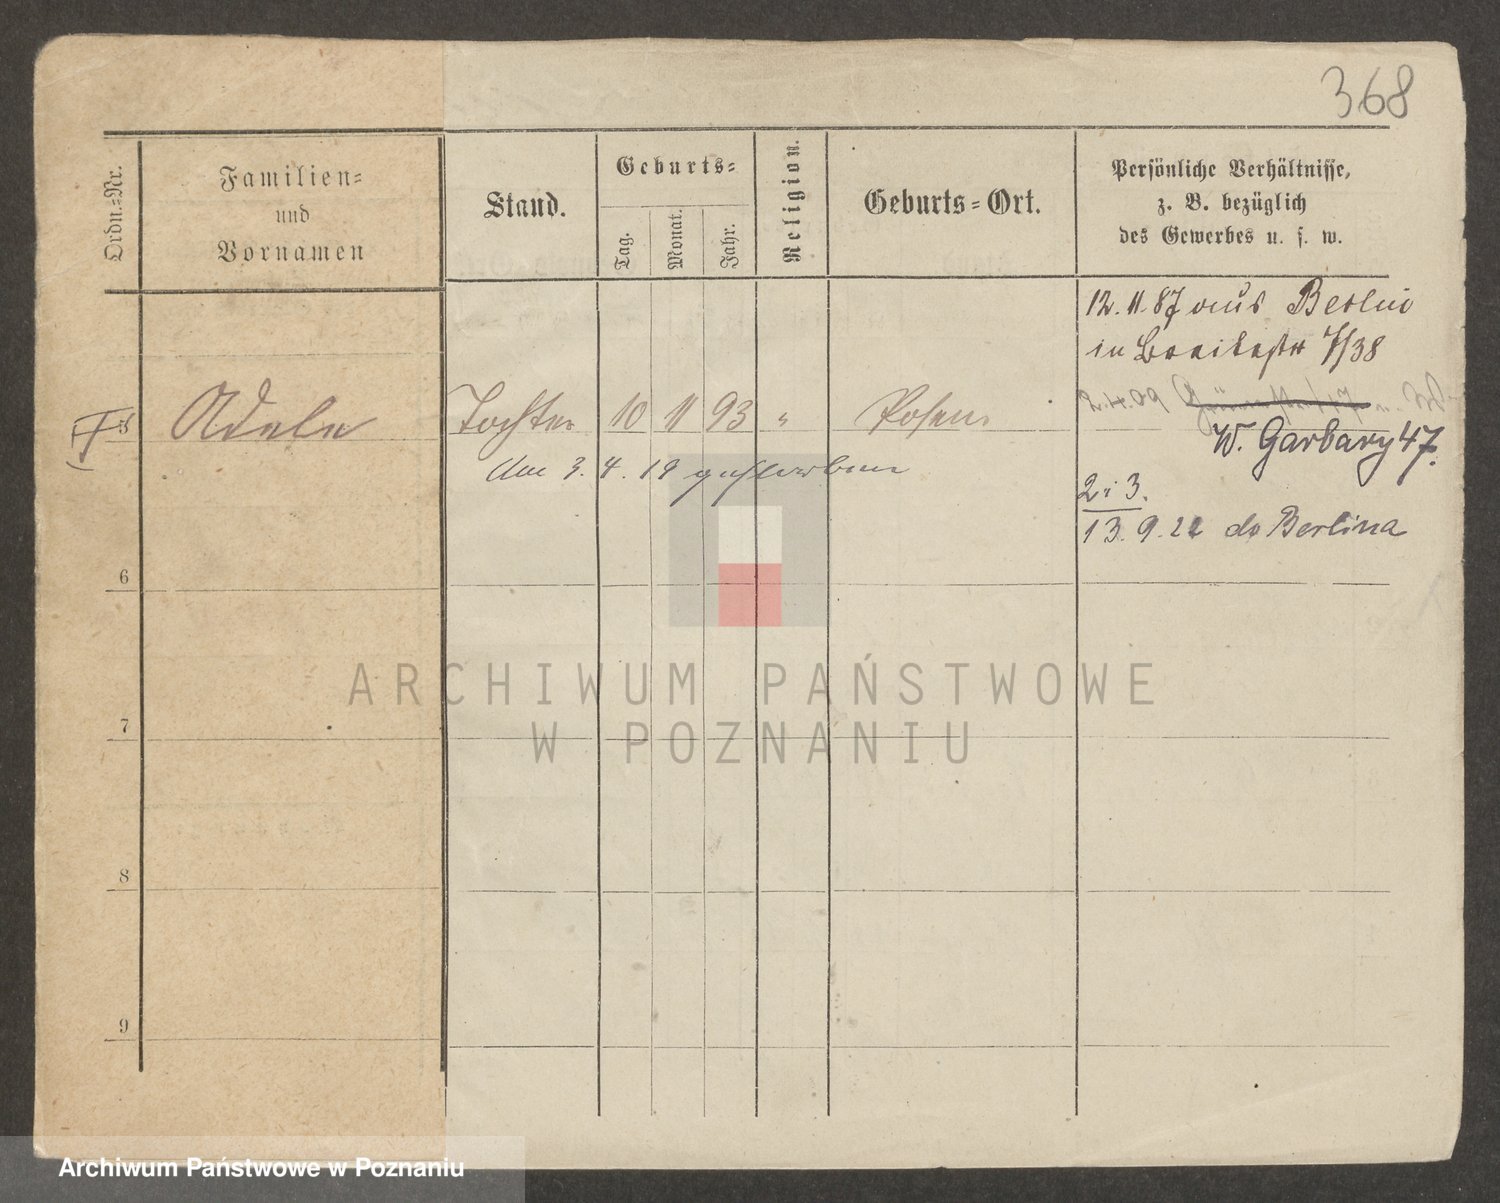 368
Ordn.-Nr.
Familien-
und
Vornamen
Stand.
Geburts-
Tag.
Monat.
Jahr.
Religion.
Geburts-Ort.
Persönliche Verhältnisse,
z. B. bezüglich
des Gewerbes u. s. w.
12. 11. 87 aus Berlin
in Breitestr 7/38
5 Adele Tochter 10 11 93 " Posen
2.4.09
W. Garbary 47.
Am 3. 4. 19 gestorben
2 i 3.
13. 9. 22 do Berlina
6
7
8
9
ARCHIWUM PAŃSTWOWE
W POZNANIU
Archiwum Państwowe w Poznaniu